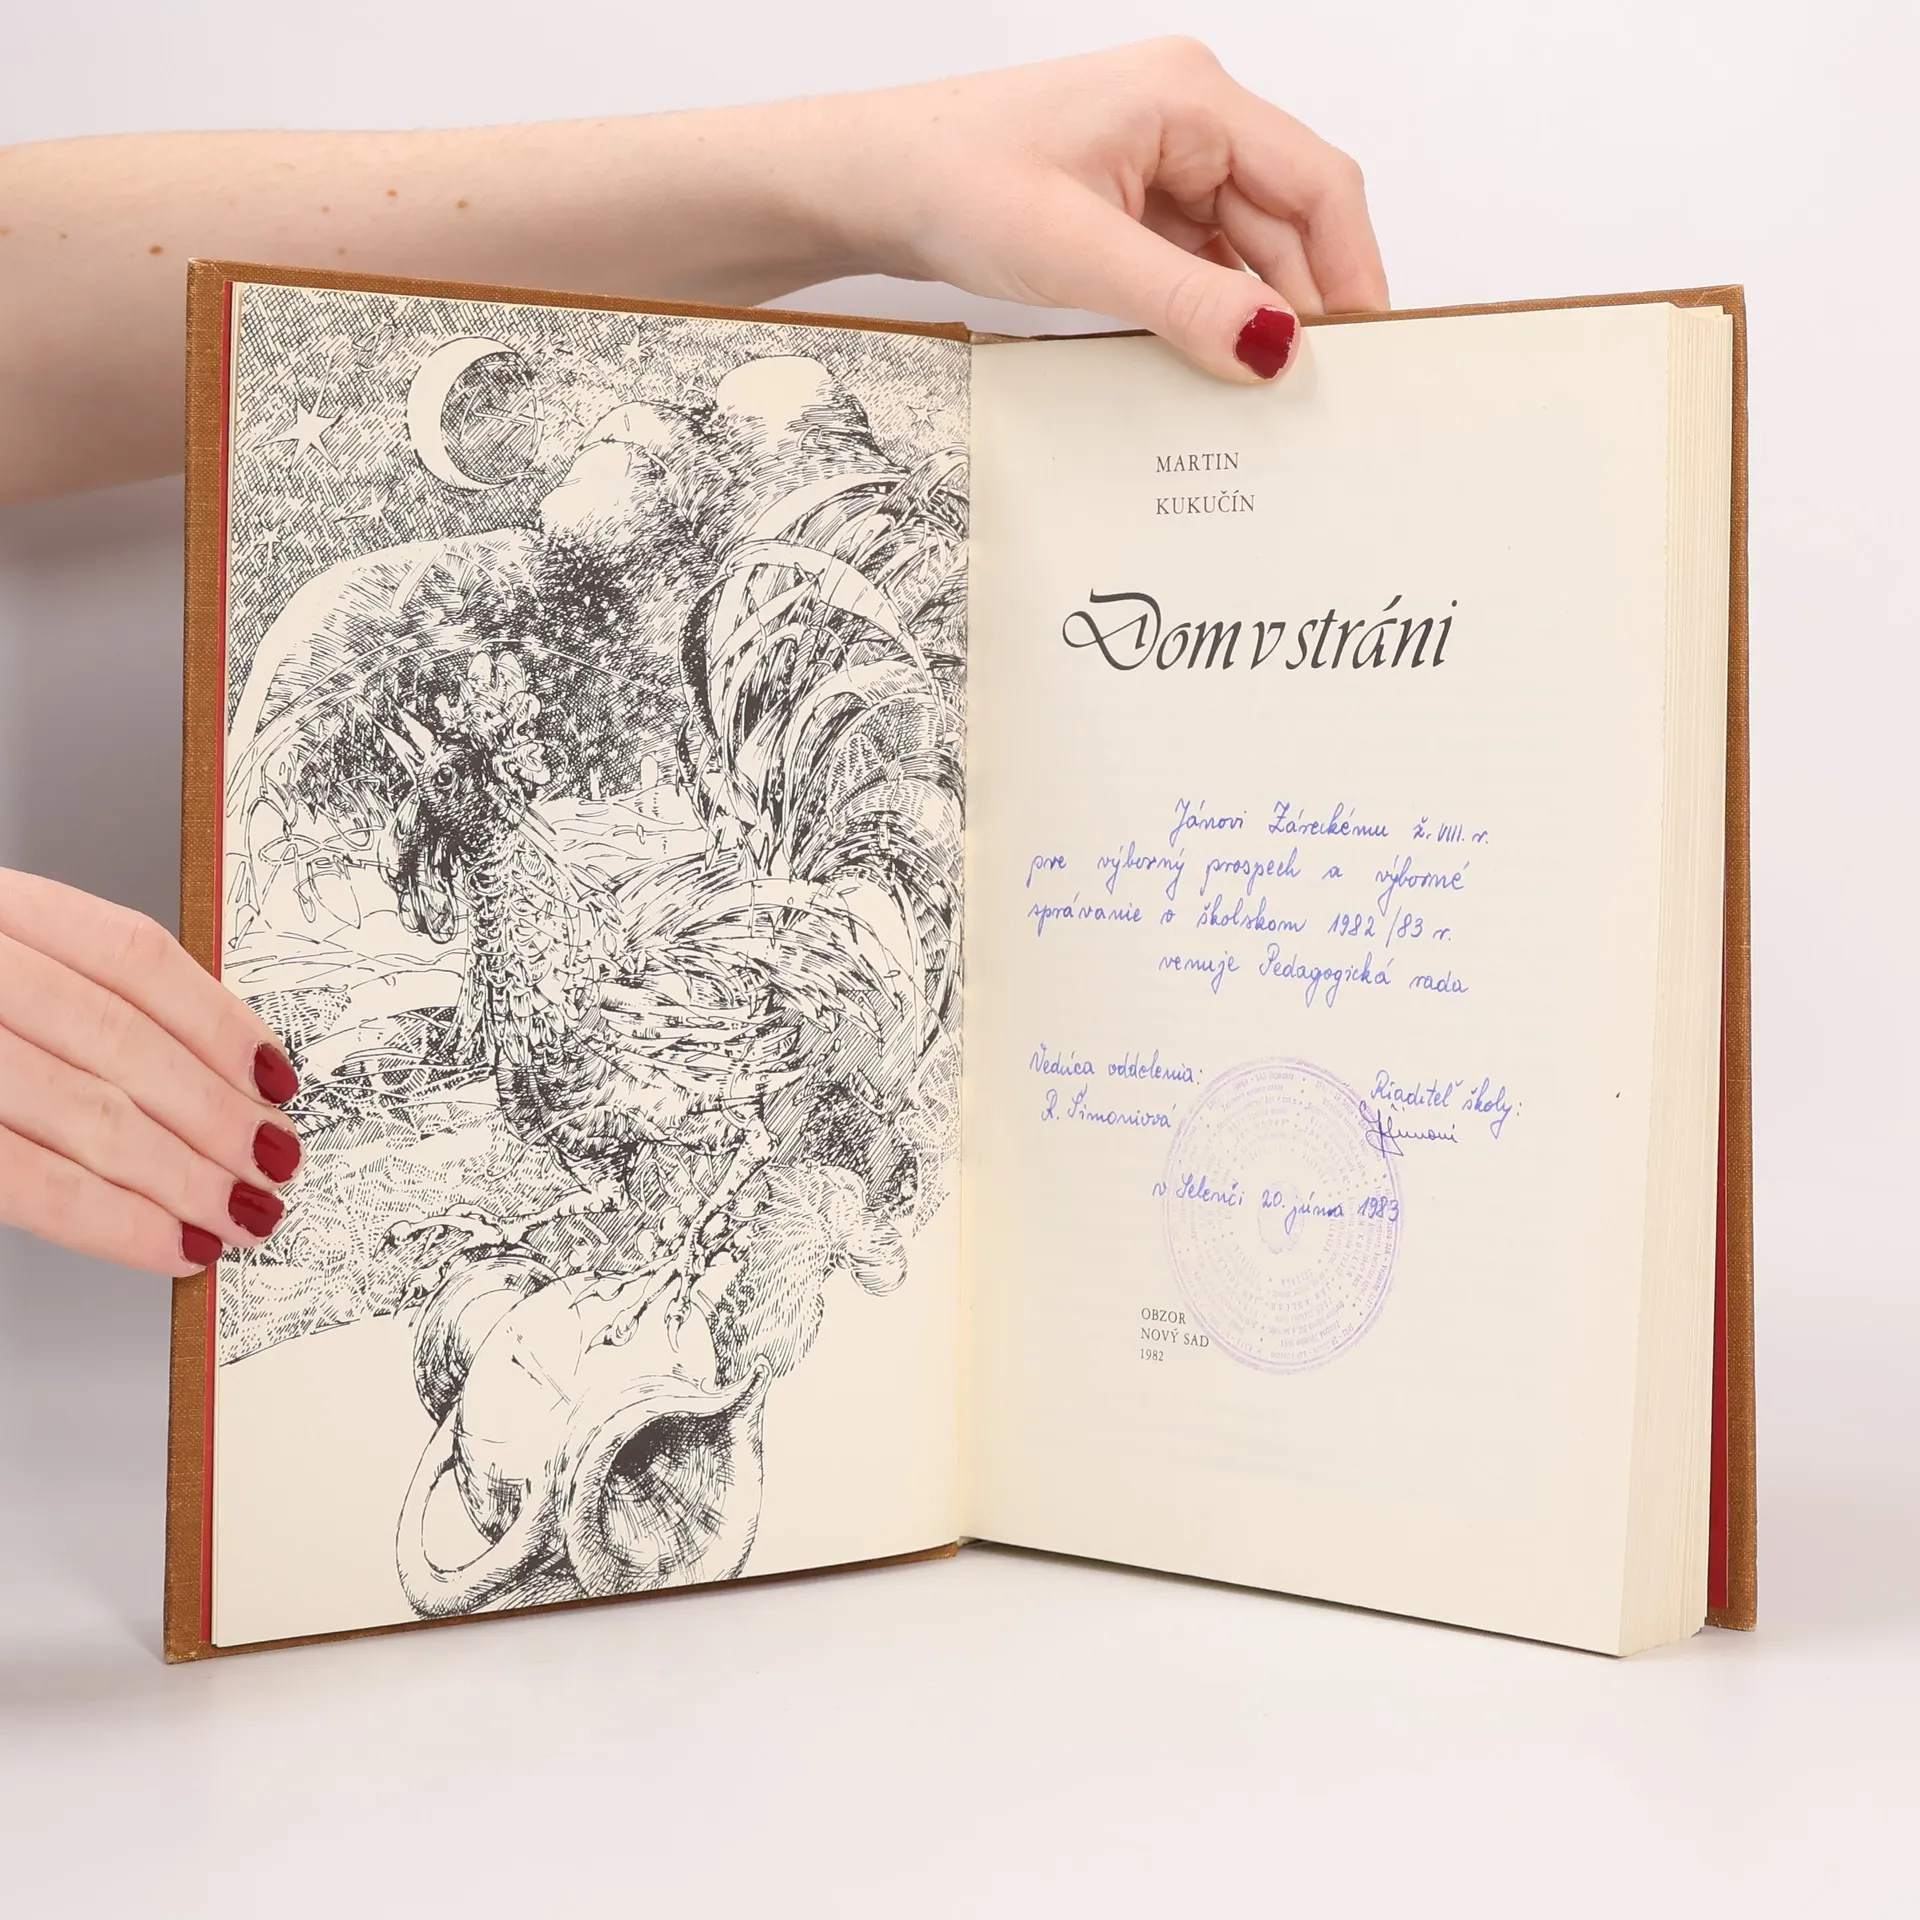 MARTIN
KUKUČÍN
Dom v stráni
Jánovi Záreckému ž. VIII. r.
pre výborný prospech a výborné
správanie v školskom 1982/83 r.
venuje Pedagogická rada
Vedúca oddelenia:
R. Šimoniová
Riaditeľ školy:
v Selenči 20. júna 1983
OBZOR
NOVÝ SAD
1982